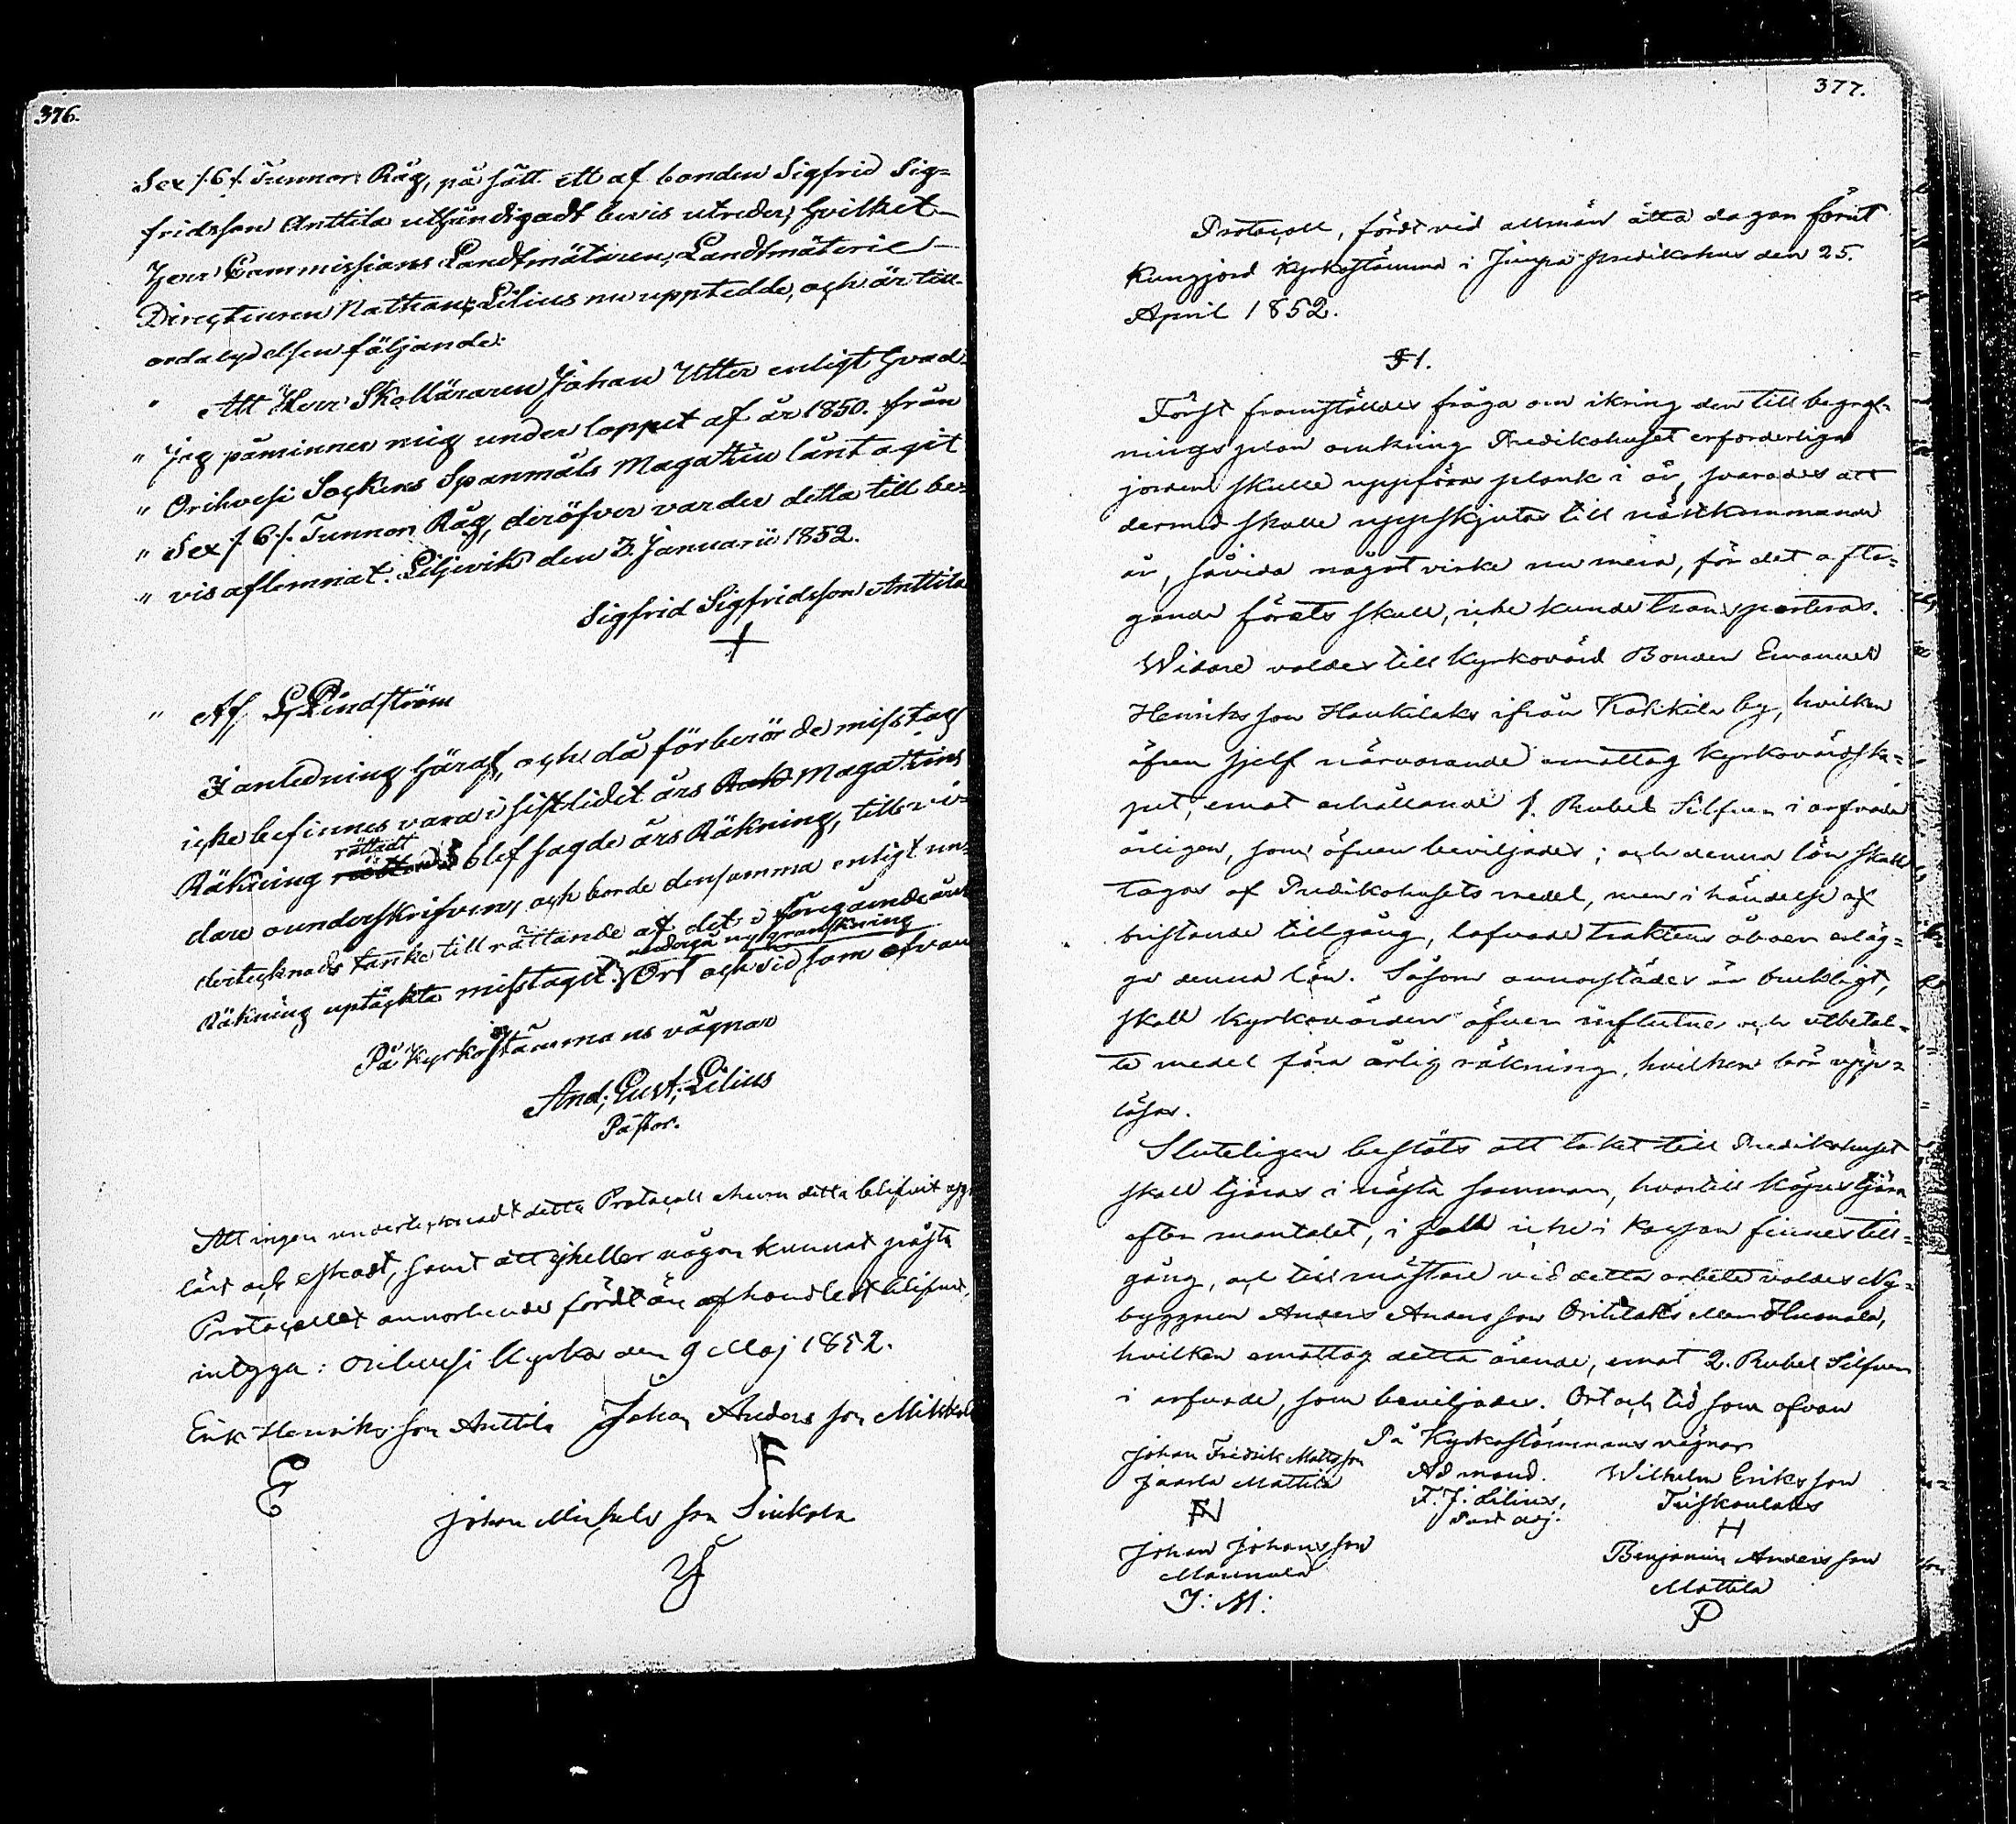 376.
Sex /:6:/ Tunnor Råg, på sätt ett af bonden Sigfrid Sig=
fridsson Anttila uthändigadt bevis utreder, hvilket
Herr Commissions Landtmätaren, Landtmäterie
Directeuren Nathan: Lilius nu upptedde, och är till
ordalydelsen följande:
" Att Herr Skolläraren Johan Utter enligt hvad
" Jag påminner mig under loppet af år 1850. från
" Orihvesi Sockens Spanmåls Magattin lånt agit
" Sex /:6:/ Tunnor Råg, deröfver varder detta till be=
" vis aflemnat. Liljevik den 3. Januarii 1852.
Sigfrid Sigfridsson Anttila
" Af L. Lindström
I anledning häraf, och då förberörde misstag
icke befinnes vara i sistlidet års Magattins
Räkning rättadt blef sagde års Räkning, till vi=
dare ounderskrifven, och borde densamma enligt un=
dertecknads tanke till rättande af det i föregående års
Räkning uptäckta misstaget undergå ny granskning Ort och tid som ofvan
På Kyrkostämmans vägnar
And; Gust; Lilius
Pastor.
Att ingen undertecknadt detta Protocoll ehuru detta blifvit upp=
läst och äskadt, samt att ejheller någon kunnat påstå
Protocollet annorlunda fördt än afhandladt blifvit,
intyga: Orihvesi Kyrka den 9 Maj 1852.
Erik Henriksson Anttila Johan Andersson Mikkola
E F
Johan Michelsson Sinkola
377.
Protocoll, fördt vid allmän åtta dagar förut
kungjord Kyrkostämma i Juupa Predikohus den 25.
April 1852.
§ 1.
Först framställdes fråga om ikring den till begraf=
ningsplan omkring Predikohuset erforderliga
jorden skulle uppföras plank i år, svarades att
dermed skulle uppskjutas till nästkommande
år, såvida något virke nu mera, för det afta=
gande förets skull, icke kunde transporteras.
Widare valdes till Kyrkovärd Bonden Emanuel
Henriksson Haukilaks ifrån Kokkila by, hvilken
äfven sjelf närvarande emottog Kyrkovärdska=
pet, emot erhållande 1. Rubel Silfver i arfvode
årligen, som äfven beviljades; och denna lön skall
tagas af Predikohusets medel, men i händelse af
bristande tillgång, lofvade traktens åboer erläg=
ga denna lön. Såsom annorstädes är brukligt,
skall Kyrkovärden öfver influtne och utbetal=
te medel föra årlig räkning, hvilken bör upp=
läsas.
Sluteligen beslöts att taket till Predikohuset
skall tjäras i nästa sommar, hvartill köpes tjära
efter mantalet, i fall icke i Kassan finnes till=
gång, och till mästare vid detta arbete valdes Ny=
byggaren Anders Andersson Oritlaks eller Huonala,
hvilken emottog detta ärende, emot 2. Rubel Silfver
i arfvode, som beviljades. Ort och tid som ofvan
På Kyrkostämmans vägnar
Johan Fredrik Matsson
Jaarla Mattila
Ad mand.
F. J. Lilius,
Past adj.
Wilhelm Eriksson
H
Johan Johansson
Mannula
J: M:
Benjamin Andersson
Mattila
P